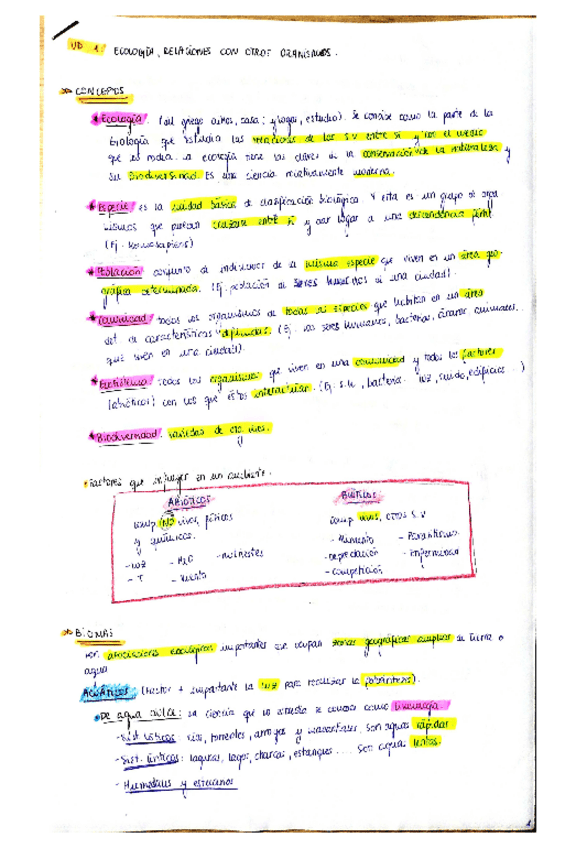 UD 1. ECOLOGÍA, RELACIONES CON OTROS ORGANISMOS.
CONCEPTOS
Ecología. (del griego oikos, casa; y logos, estudio). Se conoce como la parte de la
biología que estudia las relaciones de los S.V entre sí y con el medio
que les rodea. La ecología tiene las claves de la conservación de la naturaleza y
su biodiversidad. Es una ciencia relativamente moderna.
Especie: es la unidad básica de clasificación biológica. Y esta es un grupo de orga
nismos que puedan cruzarse entre sí y dar lugar a una descendencia fértil.
(Ej. Homo sapiens)
Población: conjunto de individuos de la misma especie que viven en un área geo
gráfica determinada. (Ej. población de seres humanos de una ciudad).
Comunidad: todos los organismos de todas las especies que habitan en un área
de características definidas. (Ej. los seres humanos, bacterias, árboles, animales...
que viven en una ciudad).
Ecosistema: todos los organismos que viven en una comunidad y todos los factores
(abióticos) con los que estos interactúan. (Ej. s.h, bacterias luz, ruido, edificios...)
Biodiversidad: variedad de
Factores que influyen en un ambiente.
ABIÓTICOS
comp. NO vivos, físicos
y químicos.
- luz - H2O - nutrientes
- T - viento
BIÓTICOS
comp. vivos, otros S.V
- Alimento - Parasitismo
- Depredación - Enfermedad
- Competición
BIOMAS
son asociaciones ecológicas importantes que ocupan zonas geográficas amplias de tierra o
agua
ACUÁTICOS (factor + importante la luz para realizar la fotosíntesis).
De agua dulce: la ciencia que lo estudia se conoce como limnología.
- Sist. lóticos: ríos, torrentes, arroyos y manantiales, son aguas rápidas
- Sist. lénticos: lagunas, lagos, charcas, estanques.... Son aguas lentas.
- Humedales y estuarios